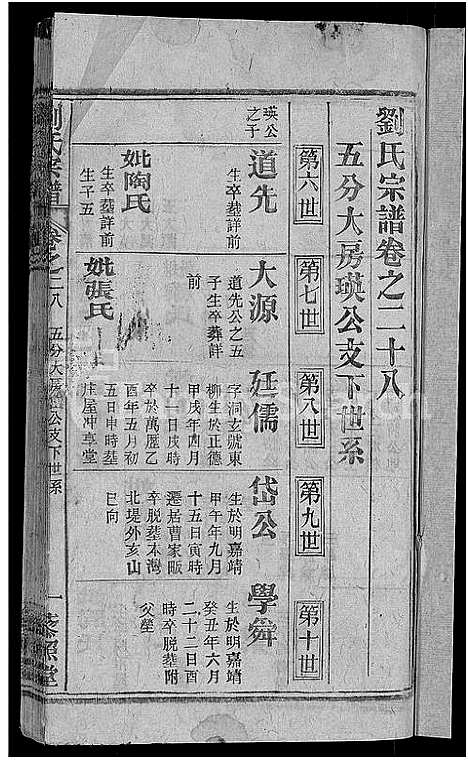 劉氏宗譜卷之二十八
五分大房瑛公支下世系
第六世
第七世
第八世
第九世
第十世
瑛公
之子
道先
生卒塟詳前
妣陶氏
生卒塟詳前
生子五
大源
道先公之五
子生卒塟詳
前
妣張氏
廷儒
字洞玄號東
柳生於正德
甲戌年四月
十一日戌時
卒於萬厯乙
酉年五月初
五日申時塟
庄屋冲享堂
岱公
生於明嘉靖
甲午年九月
十五日寅時
遷居曹家畈
卒脫塟本灣
北堤外亥山
巳向
學舜
生於明嘉靖
癸丑年六月
二十二日酉
時卒脫塟附
父塋
劉氏宗譜
卷之二八
五分大房瑛公支下世系
一